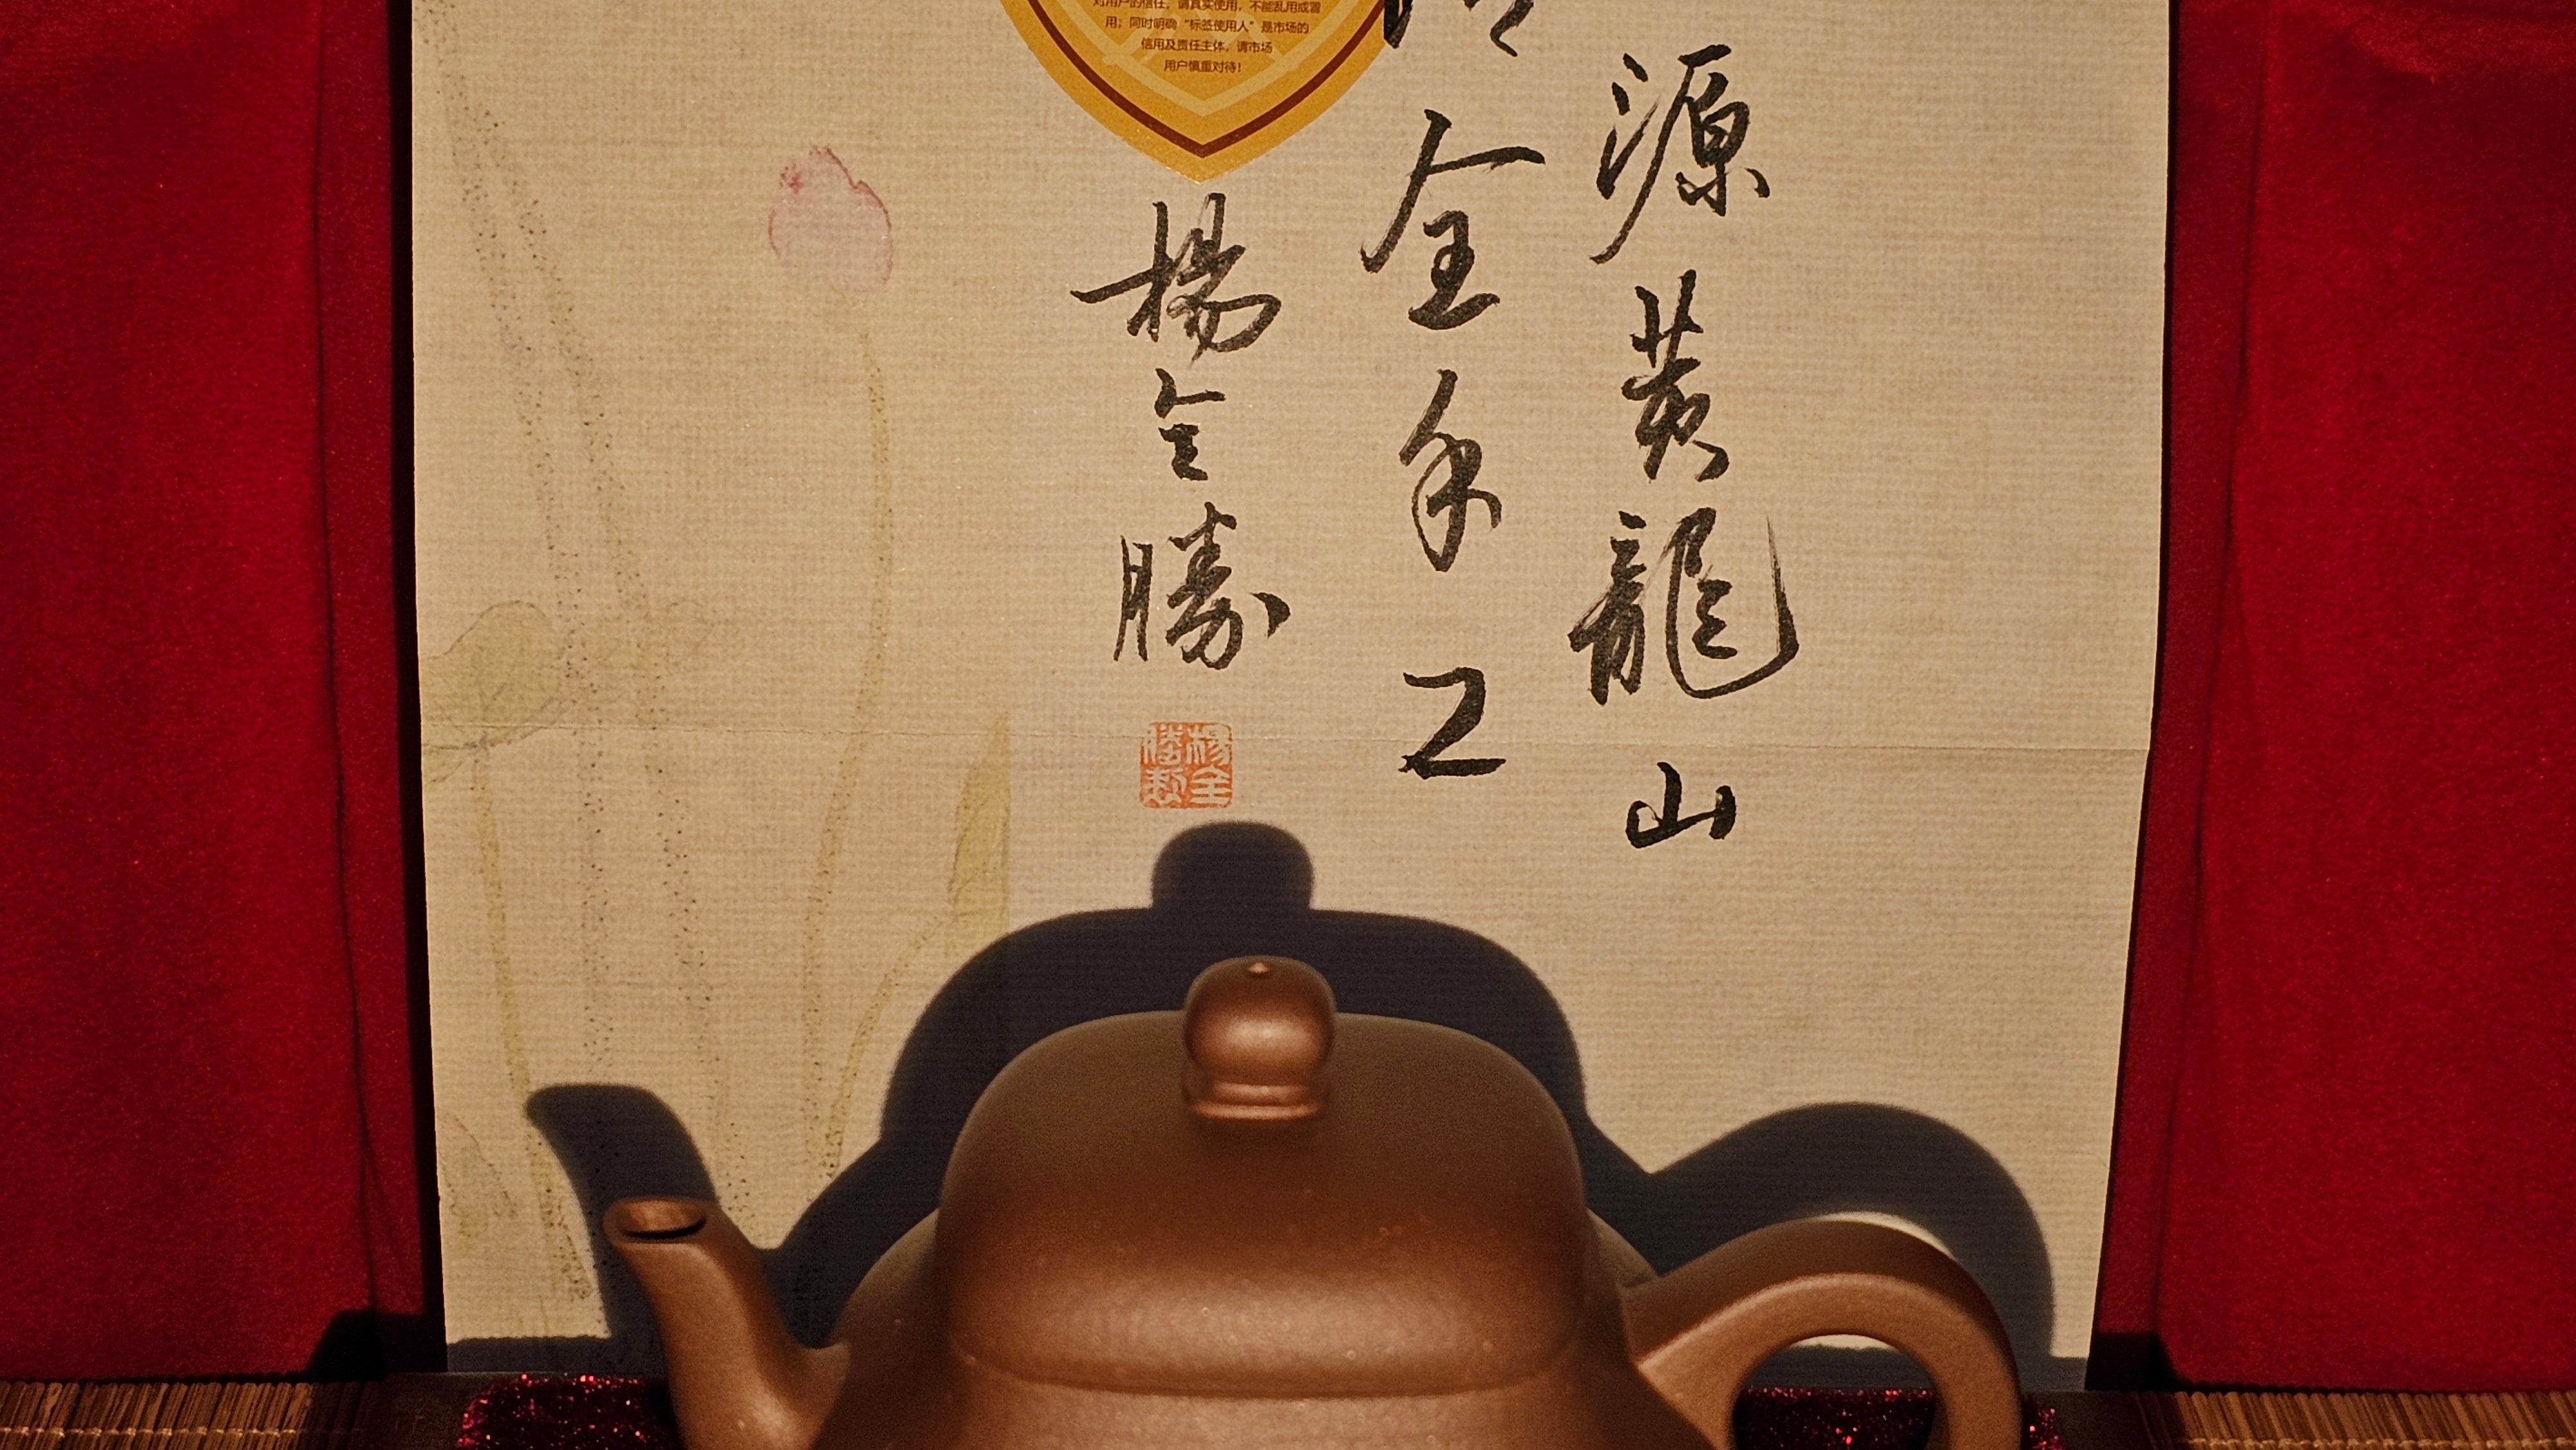 源黄龍山
全手工
楊全勝
对用户的信任，请真实使用，不能乱用或冒
用；同时明确“标签使用人”是市场的
信用及责任主体，请市场
用户慎重对待！
楊全
勝製